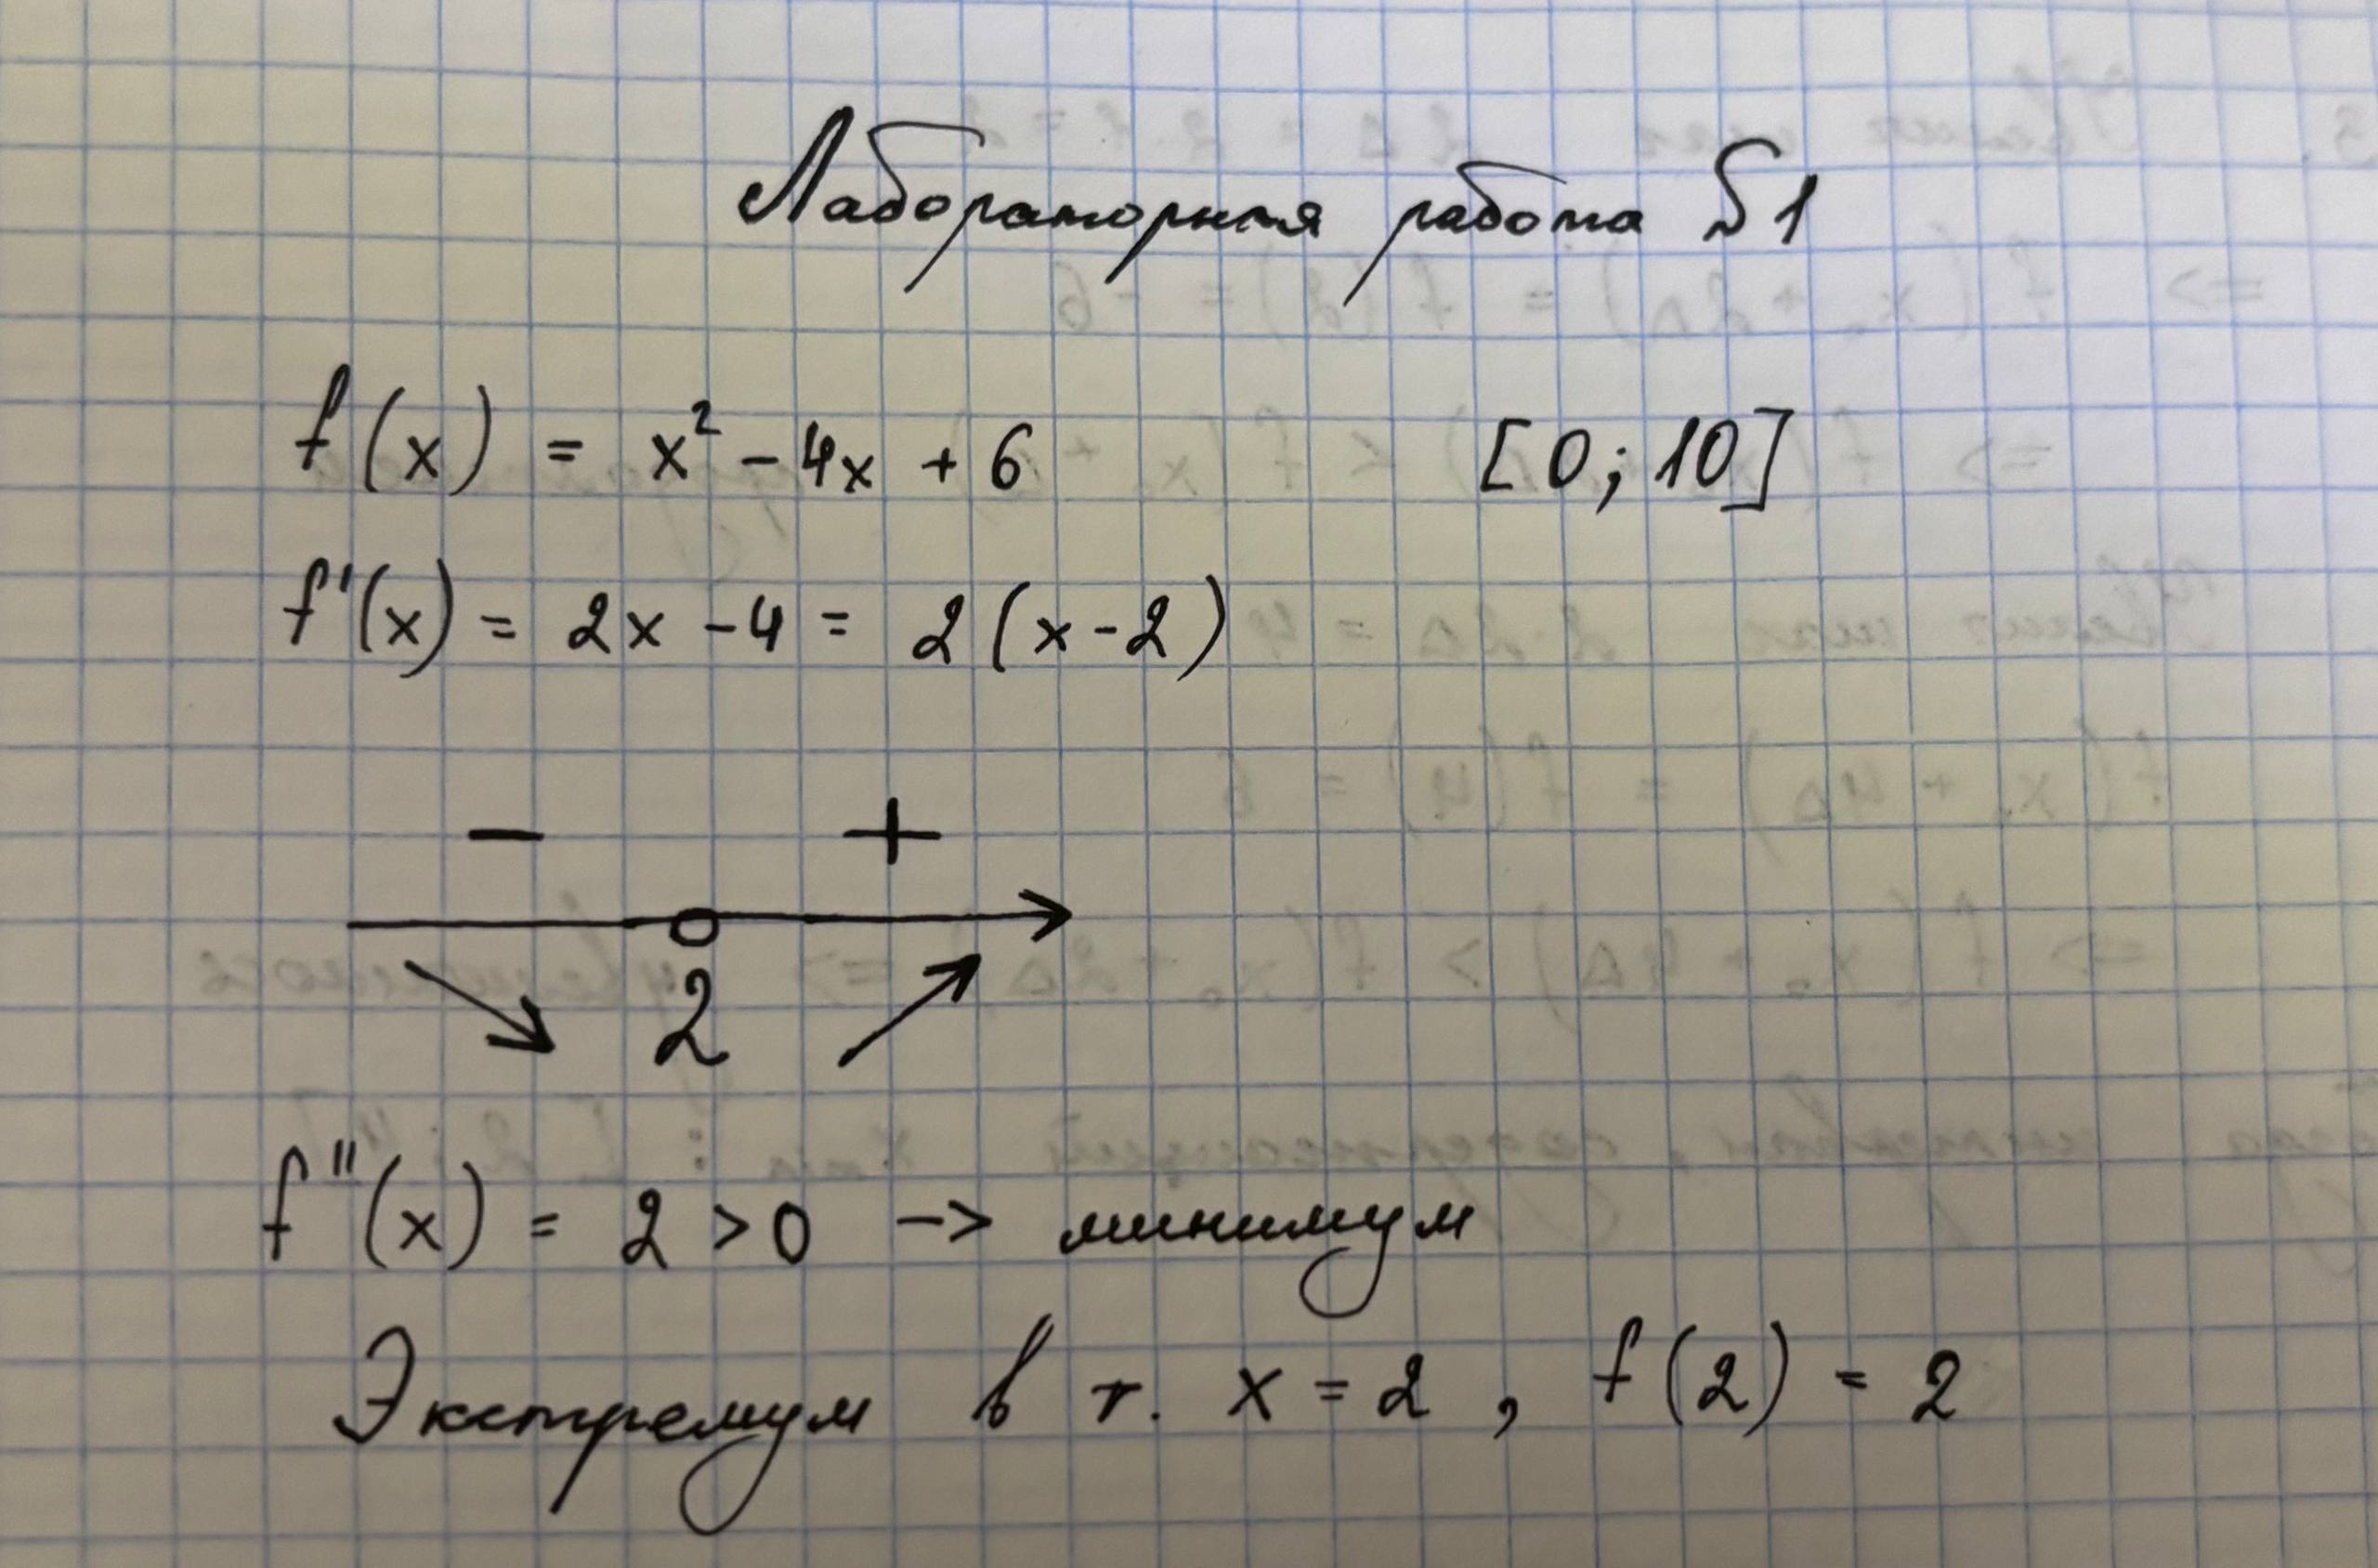 Лабораторная работа №1
f(x) = x² - 4x + 6 [0; 10]
f'(x) = 2x - 4 = 2(x-2)
- +
2
f''(x) = 2 > 0 -> минимум
Экстремум в т. x = 2, f(2) = 2